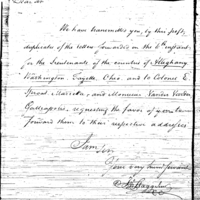 We have transmitted you, by this post,
duplicates of the letters forwarded on the 6th instant,
for the Lieutenants of the counties of Alleghany,
Washington, Fayette, Ohio, and to Colonel E
Sproat Marietta; and Monsieur
Gallipolis, requesting the favor of you to
forward them to their respective addresses
I am Sir
Your very humble servant